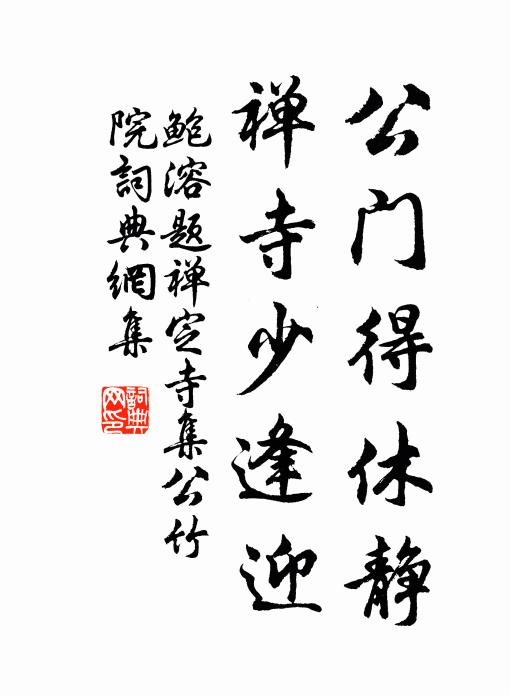 公门得休静
禅寺少逢迎
鲍溶题禅定寺集公竹
院詞典網集
詞典
网印